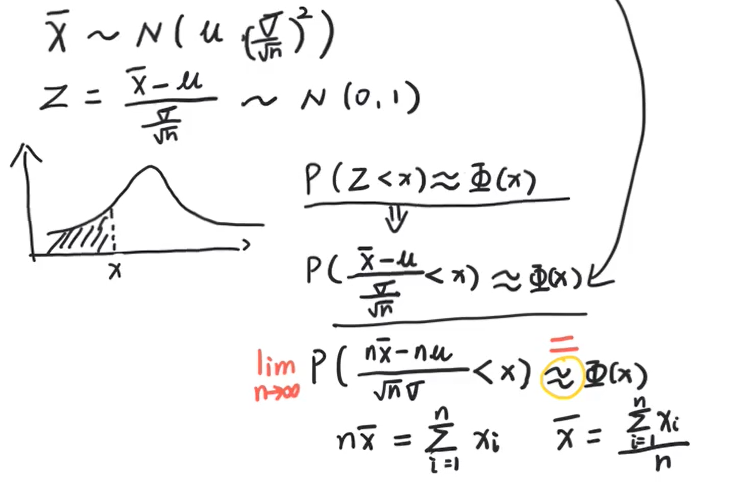 x̄ ~ N(μ (σ/√n)²)
Z = (x̄-μ)/(σ/√n) ~ N(0,1)
x
P(Z<x)≈Φ(x)
⇓
P((x̄-μ)/(σ/√n)<x)≈Φ(x)
=
lim n→∞ P((nx̄-nμ)/(√nσ)<x)≈Φ(x)
nx̄ = ∑_{i=1}^{n} xᵢ x̄ = (∑_{i=1}^{n} xᵢ)/n